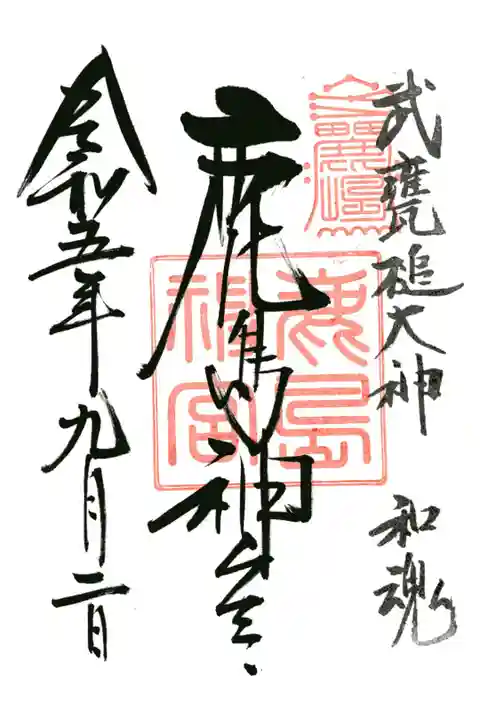 武甕槌大神 和魂
鹿島神宮
鹿島
神宮
令和五年九月二日